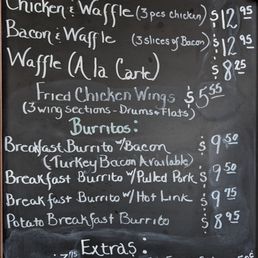 Chicken & Waffle (3 pcs chicken) $12.95
Bacon & Waffle (3 slices of Bacon) $12.95
Waffle (A la Carte) $8.25
Fried Chicken Wings $5.55
(3 wing sections - Drums & flats)
Burritos:
Breakfast Burrito w/Bacon $9.50
(Turkey Bacon Available)
Breakfast Burrito w/Pulled Pork $9.50
Breakfast Burrito w/Hot Link $9.75
Potato Breakfast Burrito $8.95
Extras: